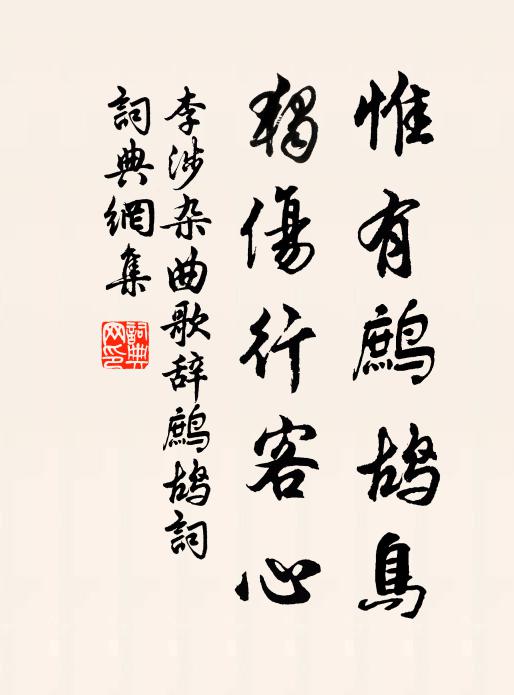 惟有鹧鸪鳥
獨傷行客心
李涉杂曲歌辞鹧鸪詞
詞典網集
詞典
网印